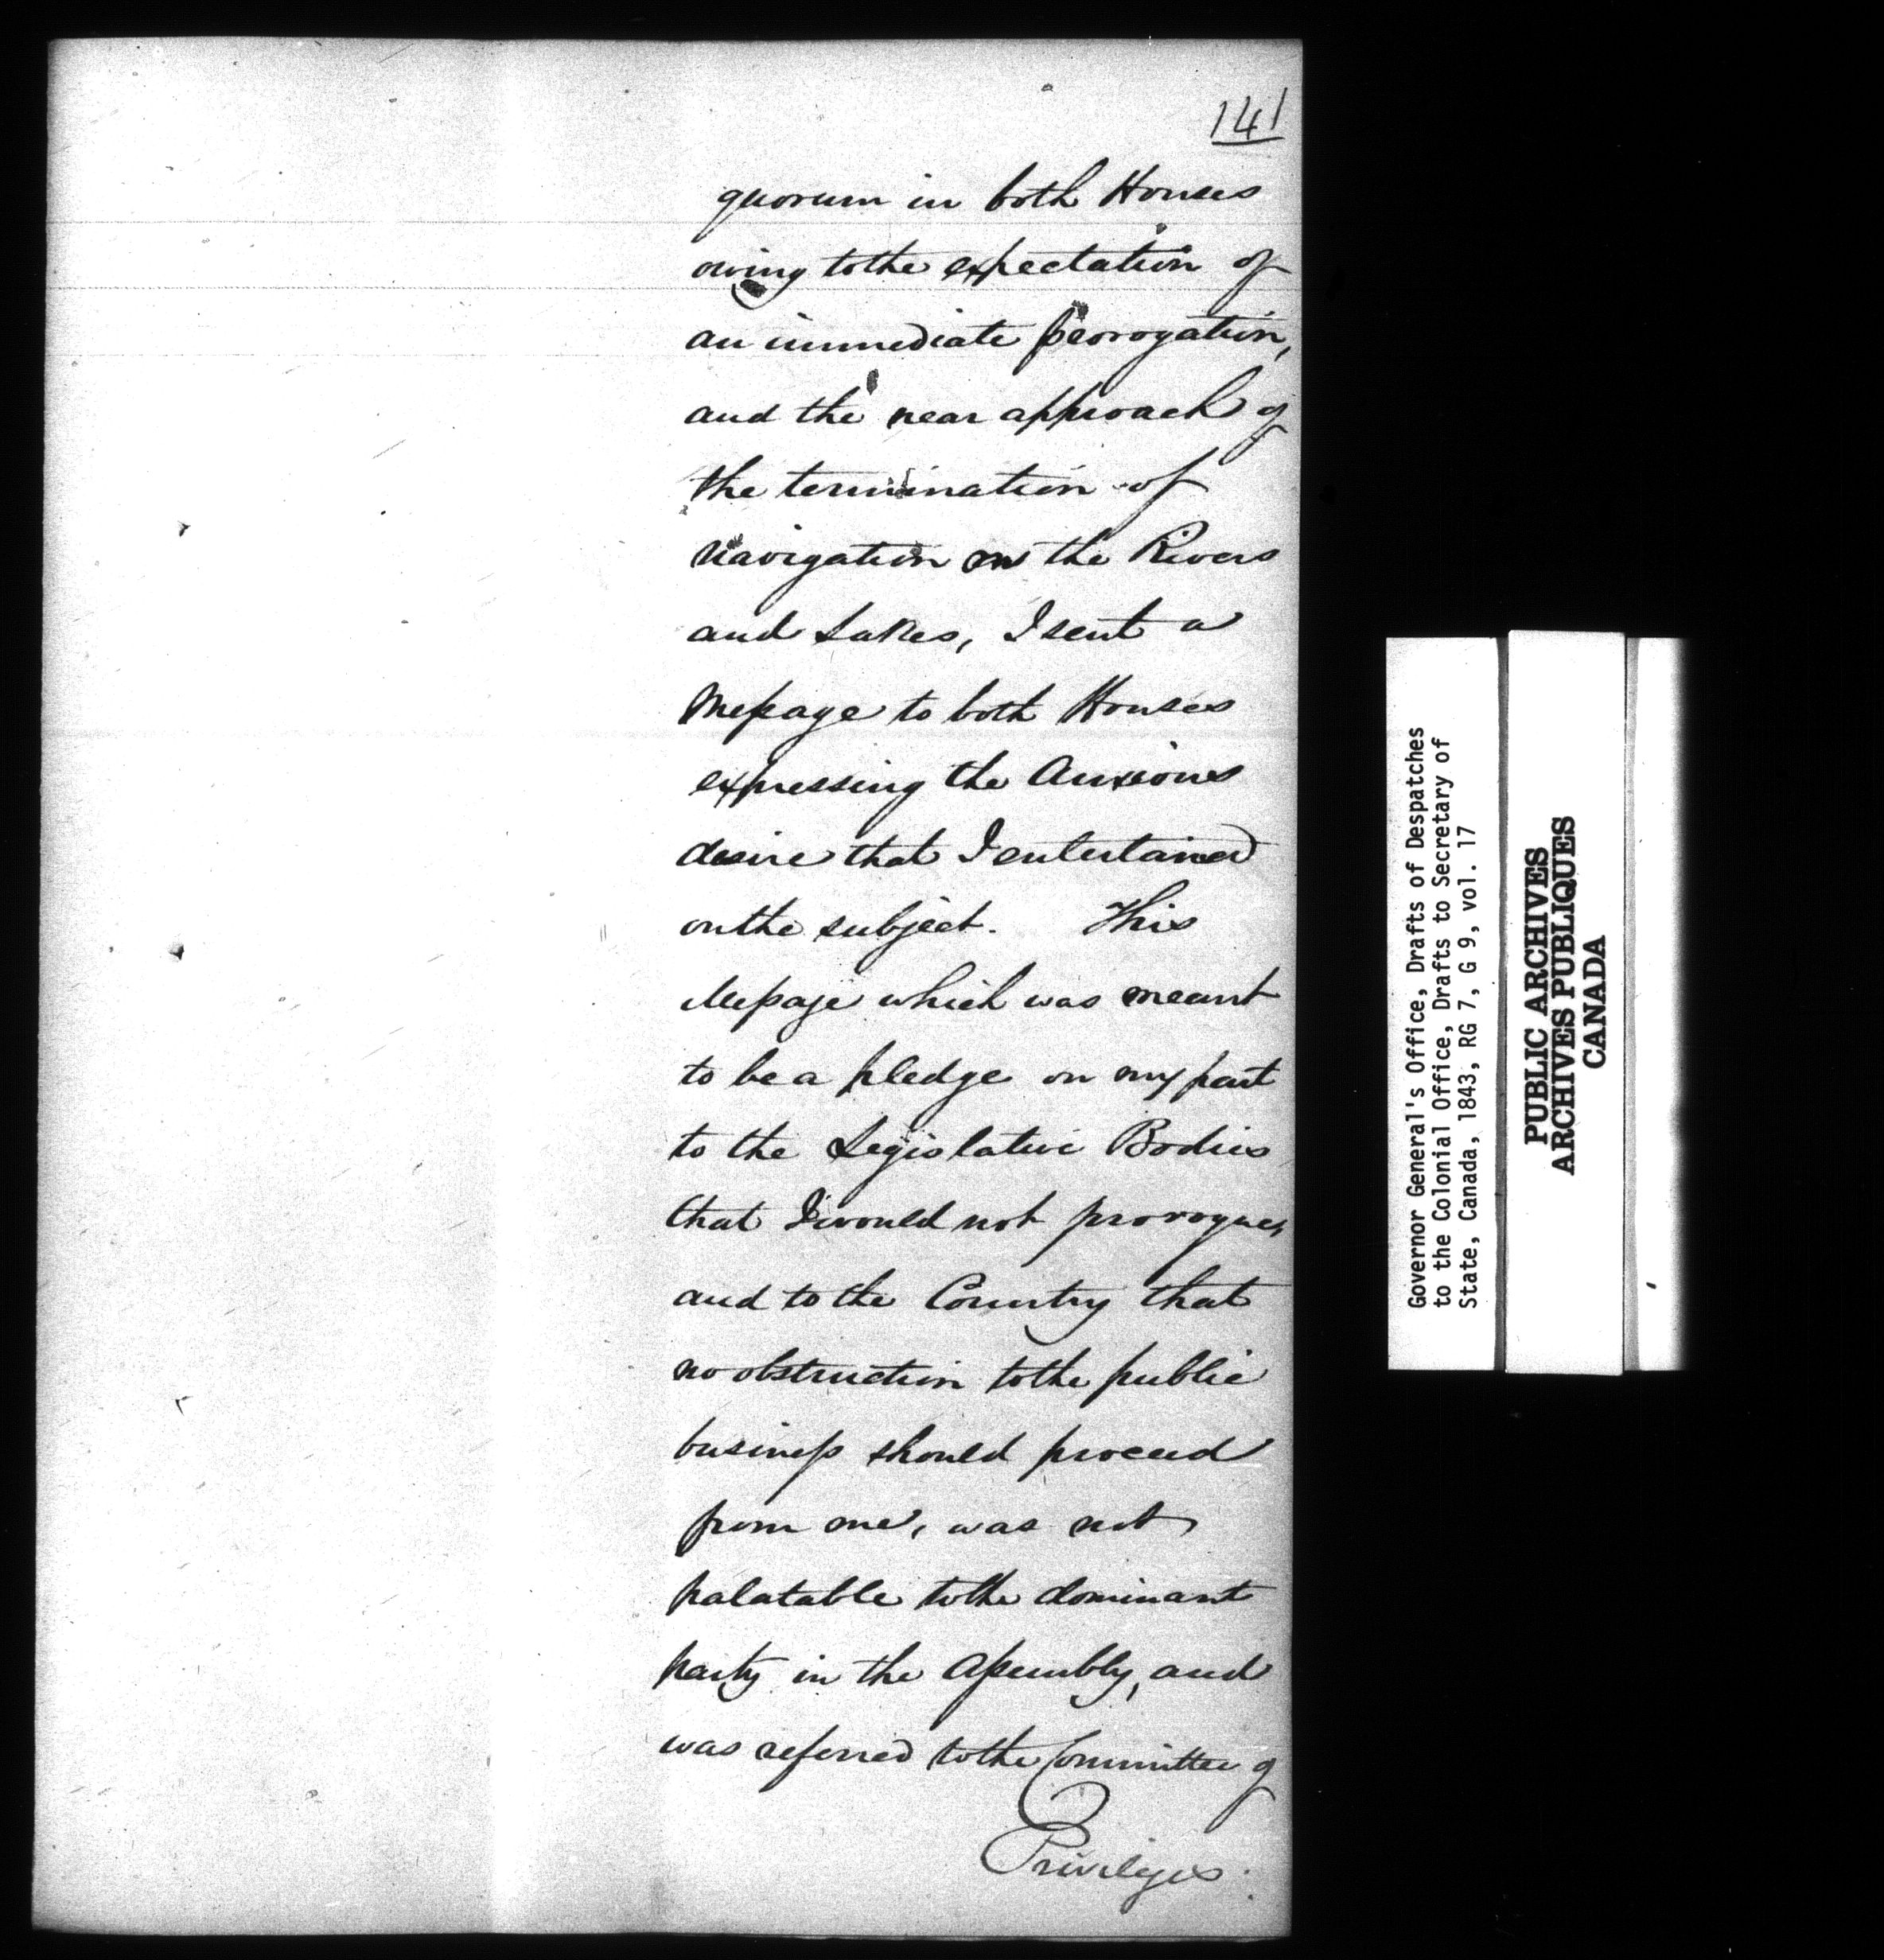 141
quorum in both Houses
owing to the expectation of
an immediate prorogation,
and the near approach of
the termination of
navigation on the Rivers
and Lakes, I sent a
Message to both Houses
expressing the Anxious
desire that I entertained
on the subject. This
Message which was meant
to be a pledge on my part
to the Legislative Bodies
that I would not prorogue,
and to the Country that
no obstruction to the public
business should proceed
from me, was not
palatable to the dominant
party in the Assembly, and
was referred to the Committee of
Privileges.
Governor General's Office, Drafts of Despatches
to the Colonial Office, Drafts to Secretary of
State, Canada, 1843, RG 7, G 9, vol. 17
PUBLIC ARCHIVES
ARCHIVES PUBLIQUES
CANADA